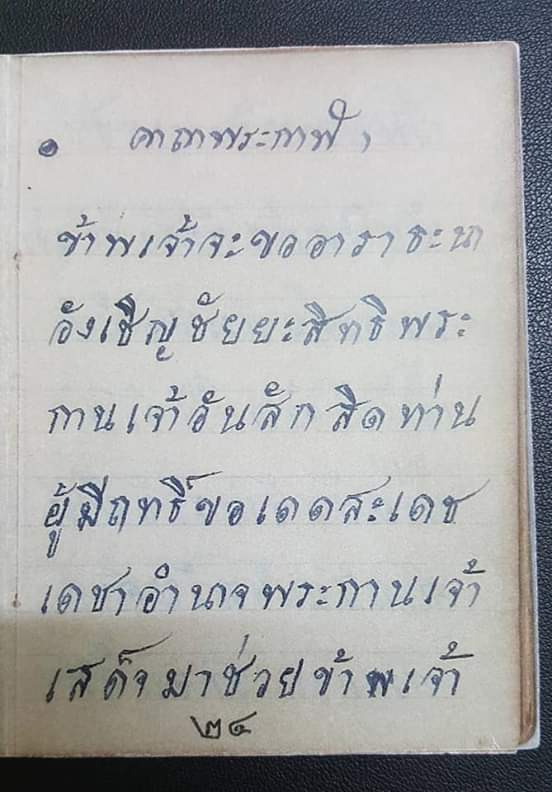 ๑ คาถาพระกาฬ ๑
ข้าพเจ้าจะขออาราธะนา
อังเชิญชัยยะสิทธิพระ
กานเจ้าอันสักสิดท่าน
ผู้มีฤทธิ์ขอเดดสะเดช
เดชาอำนาจพระกานเจ้า
เสด็จมาช่วยข้าพเจ้า
๒๔